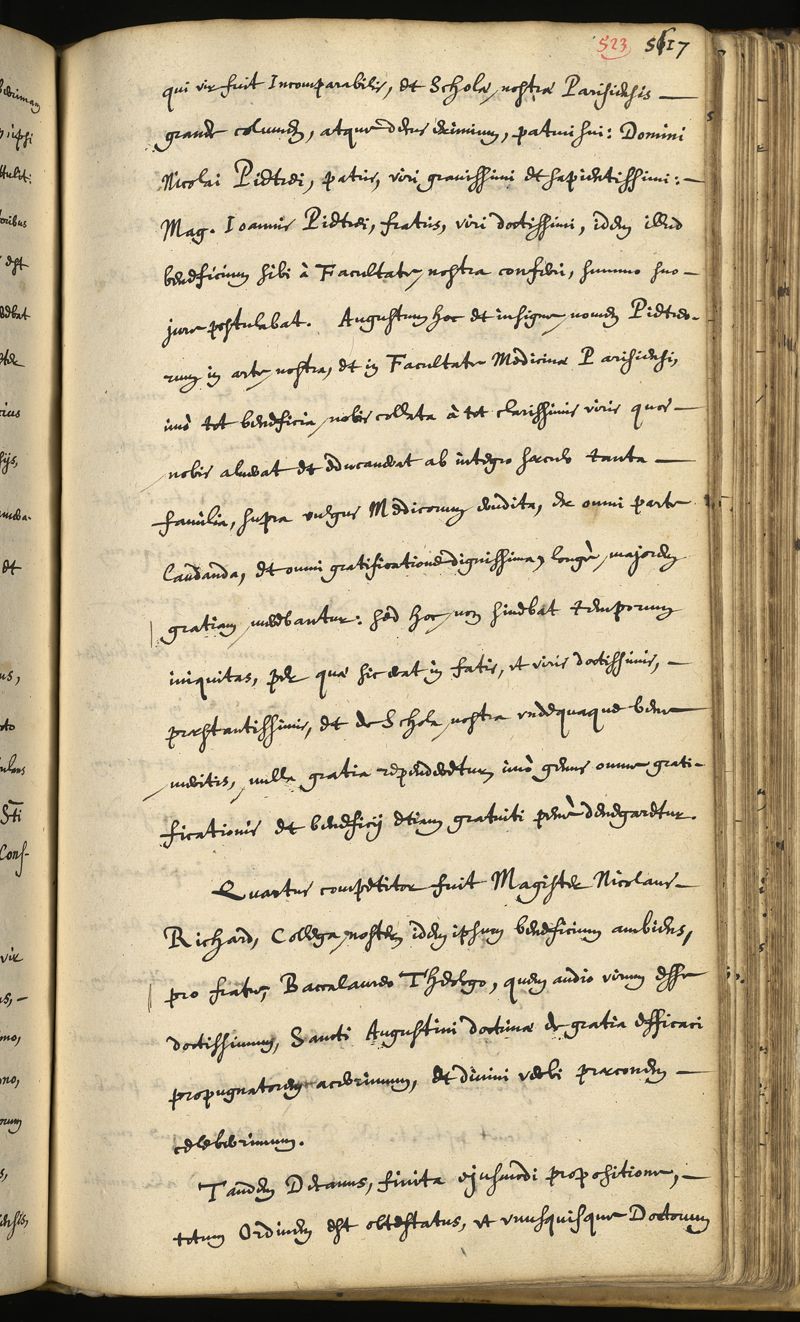 523 517
qui vir fuit Incomparabilis, et Scholæ nostræ Parisiensis —
grande columen, atque decus eximium, patrui sui: Domini
Nicolai Piëtrei, patris, viri gravissimi et sapientissimi: —
Mag. Ioannis Piëtrei, fratris, viri doctissimi, idem illud
beneficium sibi à Facultate nostra conferri, summo suo —
jure postulabat. Augustum hoc et insigne nomen Piëtreo-
rum in arte nostra, et in Facultate Medicinæ Parisiensi,
imò tot beneficia nobis collata à tot clarissimis viris quos —
nobis aluerat et educaverat ab integro sæculo tanta —
familia, supra vulgus Medicorum erudita, ex omni parte
laudanda, et omni gratificatione dignissima, longè majorem
gratiam merebantur: sed hoc non sinebat temporum
iniquitas, per quæ sic erat in fatis, vt viris doctissimis, —
præstantissimis, et de Schola nostra vndequaque bene
meritis, nulla gratia rependeretur, imò genus omne grati-
ficationis et beneficij etiam gratuiti penè denegaretur.
Quartus competitor fuit Magister Nicolaus —
Richard, Collega noster, idem ipsum beneficium ambiens,
pro fratre, Baccalaureo Theologo, quem audio virum esse
doctissimum, Sancti Augustini doctrinæ de gratia efficaci
propugnatorem acerrimum, et divini verbi præconem —
celeberrimum.
Tandem Decanus, finita ejusmodi propositione, —
totum Ordinem est obtestatus, vt vnusquisque Doctorum